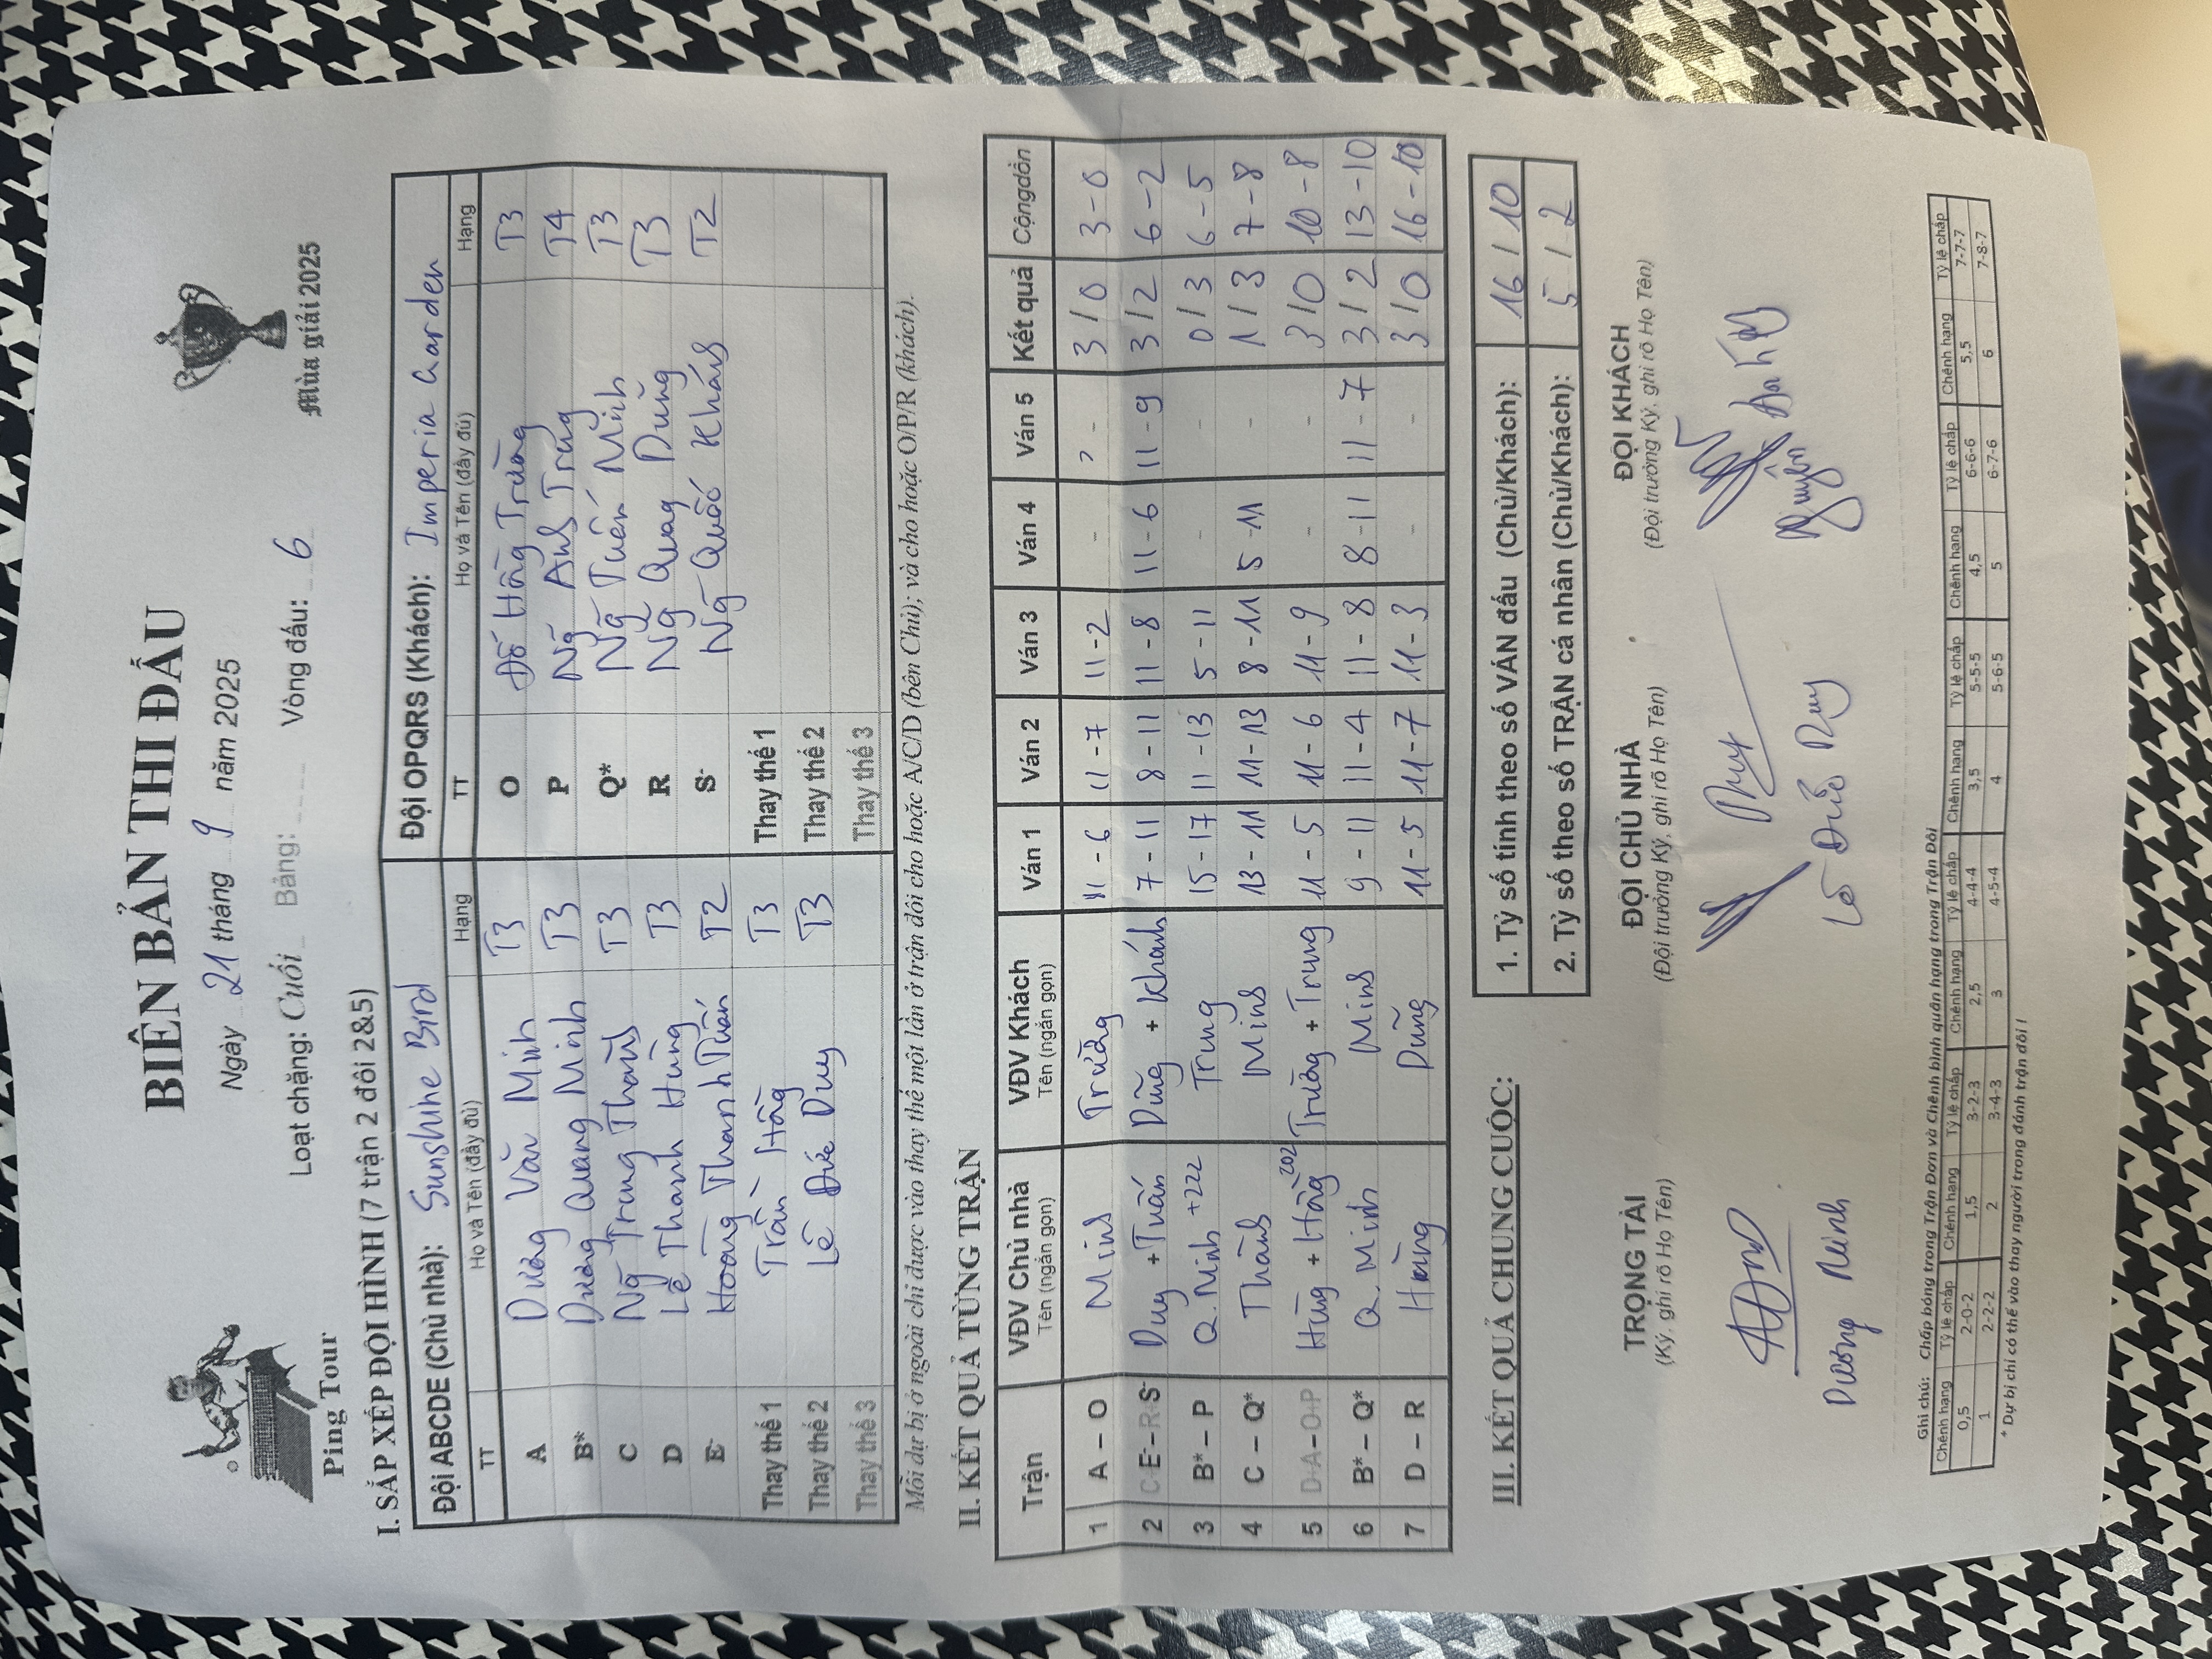 BIÊN BẢN THI ĐẤU
Ngày 21 tháng 9 năm 2025
Loạt chặng: Cuối Bảng: Vòng đấu: 6
Ping Tour
Mùa giải 2025
I. SẮP XẾP ĐỘI HÌNH (7 trận 2 đôi 2&5)
Đội ABCDE (Chủ nhà): Sunshine Bird Đội OPQRS (Khách): Imperia Garden
TT Họ và Tên (đầy đủ) Hạng TT Họ và Tên (đầy đủ) Hạng
A Dương Văn Minh T3 O Đỗ Hồng Trường T3
B* Dương Quang Minh T3 P Ng Anh Trung T4
C Ng Trung Thành T3 Q* Ng Tuấn Minh T3
D Lê Thanh Hùng T3 R Ng Quag Dũng T3
E- Hoàng Thanh Tuấn T2 S- Ng Quốc Khánh T2
Thay thế 1 Trần Hồng T3 Thay thế 1
Thay thế 2 Lê Đức Duy T3 Thay thế 2
Thay thế 3 Thay thế 3
Mỗi dự bị ở ngoài chỉ được vào thay thế một lần ở trận đôi cho hoặc A/C/D (bên Chủ); và cho hoặc O/P/R (khách).
II. KẾT QUẢ TỪNG TRẬN
Trận VĐV Chủ nhà VĐV Khách Ván 1 Ván 2 Ván 3 Ván 4 Ván 5 Kết quả Cộng dồn
Tên (ngắn gọn) Tên (ngắn gọn)
1 A – O Minh Trường 11 - 6 11 - 7 11 - 2 - - 3 / 0 3 - 0
2 C+E- – R+S- Duy + Tuấn Dũng + Khánh 7 - 11 8 - 11 11 - 8 11 - 6 11 - 9 3 / 2 6 - 2
3 B* – P Q.Minh +222 Trung 15 - 17 11 - 13 5 - 11 - - 0 / 3 6 - 5
4 C – Q* Thành Minh 13 - 11 11 - 13 8 - 11 5 - 11 - 1 / 3 7 - 8
5 D+A – O+P Hùng + Hồng 202 Trường + Trung 11 - 5 11 - 6 11 - 9 - - 3 / 0 10 - 8
6 B* – Q* Q. Minh Minh 9 - 11 11 - 4 11 - 8 8 - 11 11 - 7 3 / 2 13 - 10
7 D – R Hùng Dũng 11 - 5 11 - 7 11 - 3 - - 3 / 0 16 - 10
III. KẾT QUẢ CHUNG CUỘC:
1. Tỷ số tính theo số VÁN đấu (Chủ/Khách): 16 / 10
2. Tỷ số theo số TRẬN cá nhân (Chủ/Khách): 5 / 2
TRỌNG TÀI ĐỘI CHỦ NHÀ ĐỘI KHÁCH
(Ký, ghi rõ Họ Tên) (Đội trưởng Ký, ghi rõ Họ Tên) (Đội trưởng Ký, ghi rõ Họ Tên)
Dương Minh Lê Đức Duy Nguyễn
Ghi chú: Chấp bóng trong Trận Đơn và Chênh bình quân hạng trong Trận Đôi
Chênh hạng Tỷ lệ chấp Chênh hạng Tỷ lệ chấp Chênh hạng Tỷ lệ chấp Chênh hạng Tỷ lệ chấp Chênh hạng Tỷ lệ chấp Chênh hạng Tỷ lệ chấp
0,5 2-0-2 1,5 3-2-3 2,5 4-4-4 3,5 5-5-5 4,5 6-6-6 5,5 7-7-7
1 2-2-2 2 3-4-3 3 4-5-4 4 5-6-5 5 6-7-6 6 7-8-7
* Dự bị chỉ có thể vào thay người trong đánh trận đôi !